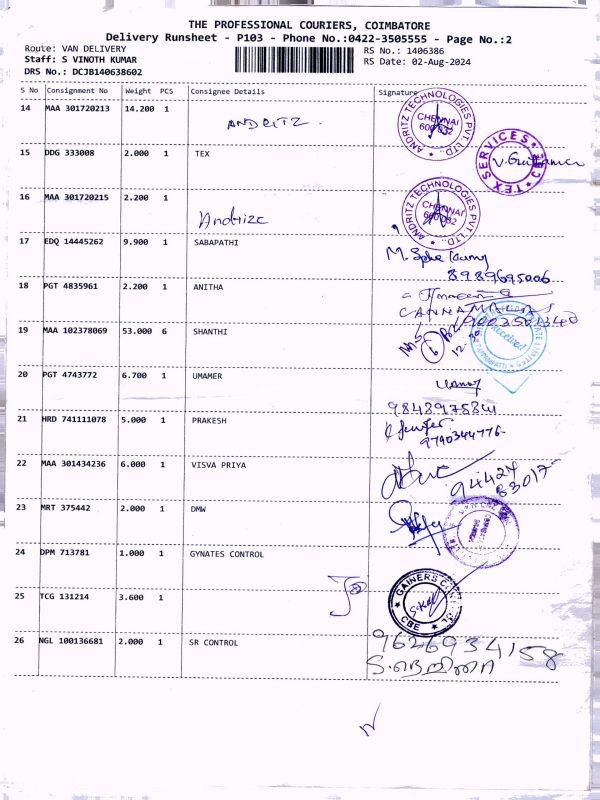 THE PROFESSIONAL COURIERS, COIMBATORE
Delivery Runsheet - P103 - Phone No.:0422-3505555 - Page No.:2
Route: VAN DELIVERY
RS No.: 1406386
Staff: S VINOTH KUMAR
RS Date: 02-Aug-2024
DRS No.: DCJB140638602
S No Consignment No Weight PCS Consignee Details Signature
14 MAA 301720213 14.200 1 ANDRITZ. ANDRITZ TECHNOLOGIES PVT LTD., CHENNAI 600 032
15 DDG 333008 2.000 1 TEX TEX SERVICES CBE
16 MAA 301720215 2.200 1 Andritz ANDRITZ TECHNOLOGIES PVT LTD., CHENNAI 600 032
17 EDQ 14445262 9.900 1 SABAPATHI
8989695006
18 PGT 4835961 2.200 1 ANITHA
19 MAA 102378069 53.000 6 SHANTHI Received
20 PGT 4743772 6.700 1 UMAMER
21 HRD 741111078 5.000 1 PRAKESH
9790344776
22 MAA 301434236 6.000 1 VISVA PRIYA 94424
83017
23 MRT 375442 2.000 1 DMW
24 DPM 713781 1.000 1 GYNATES CONTROL
25 TCG 131214 3.600 1 GAINERS CBE
26 NGL 100136681 2.000 1 SR CONTROL 9626934158